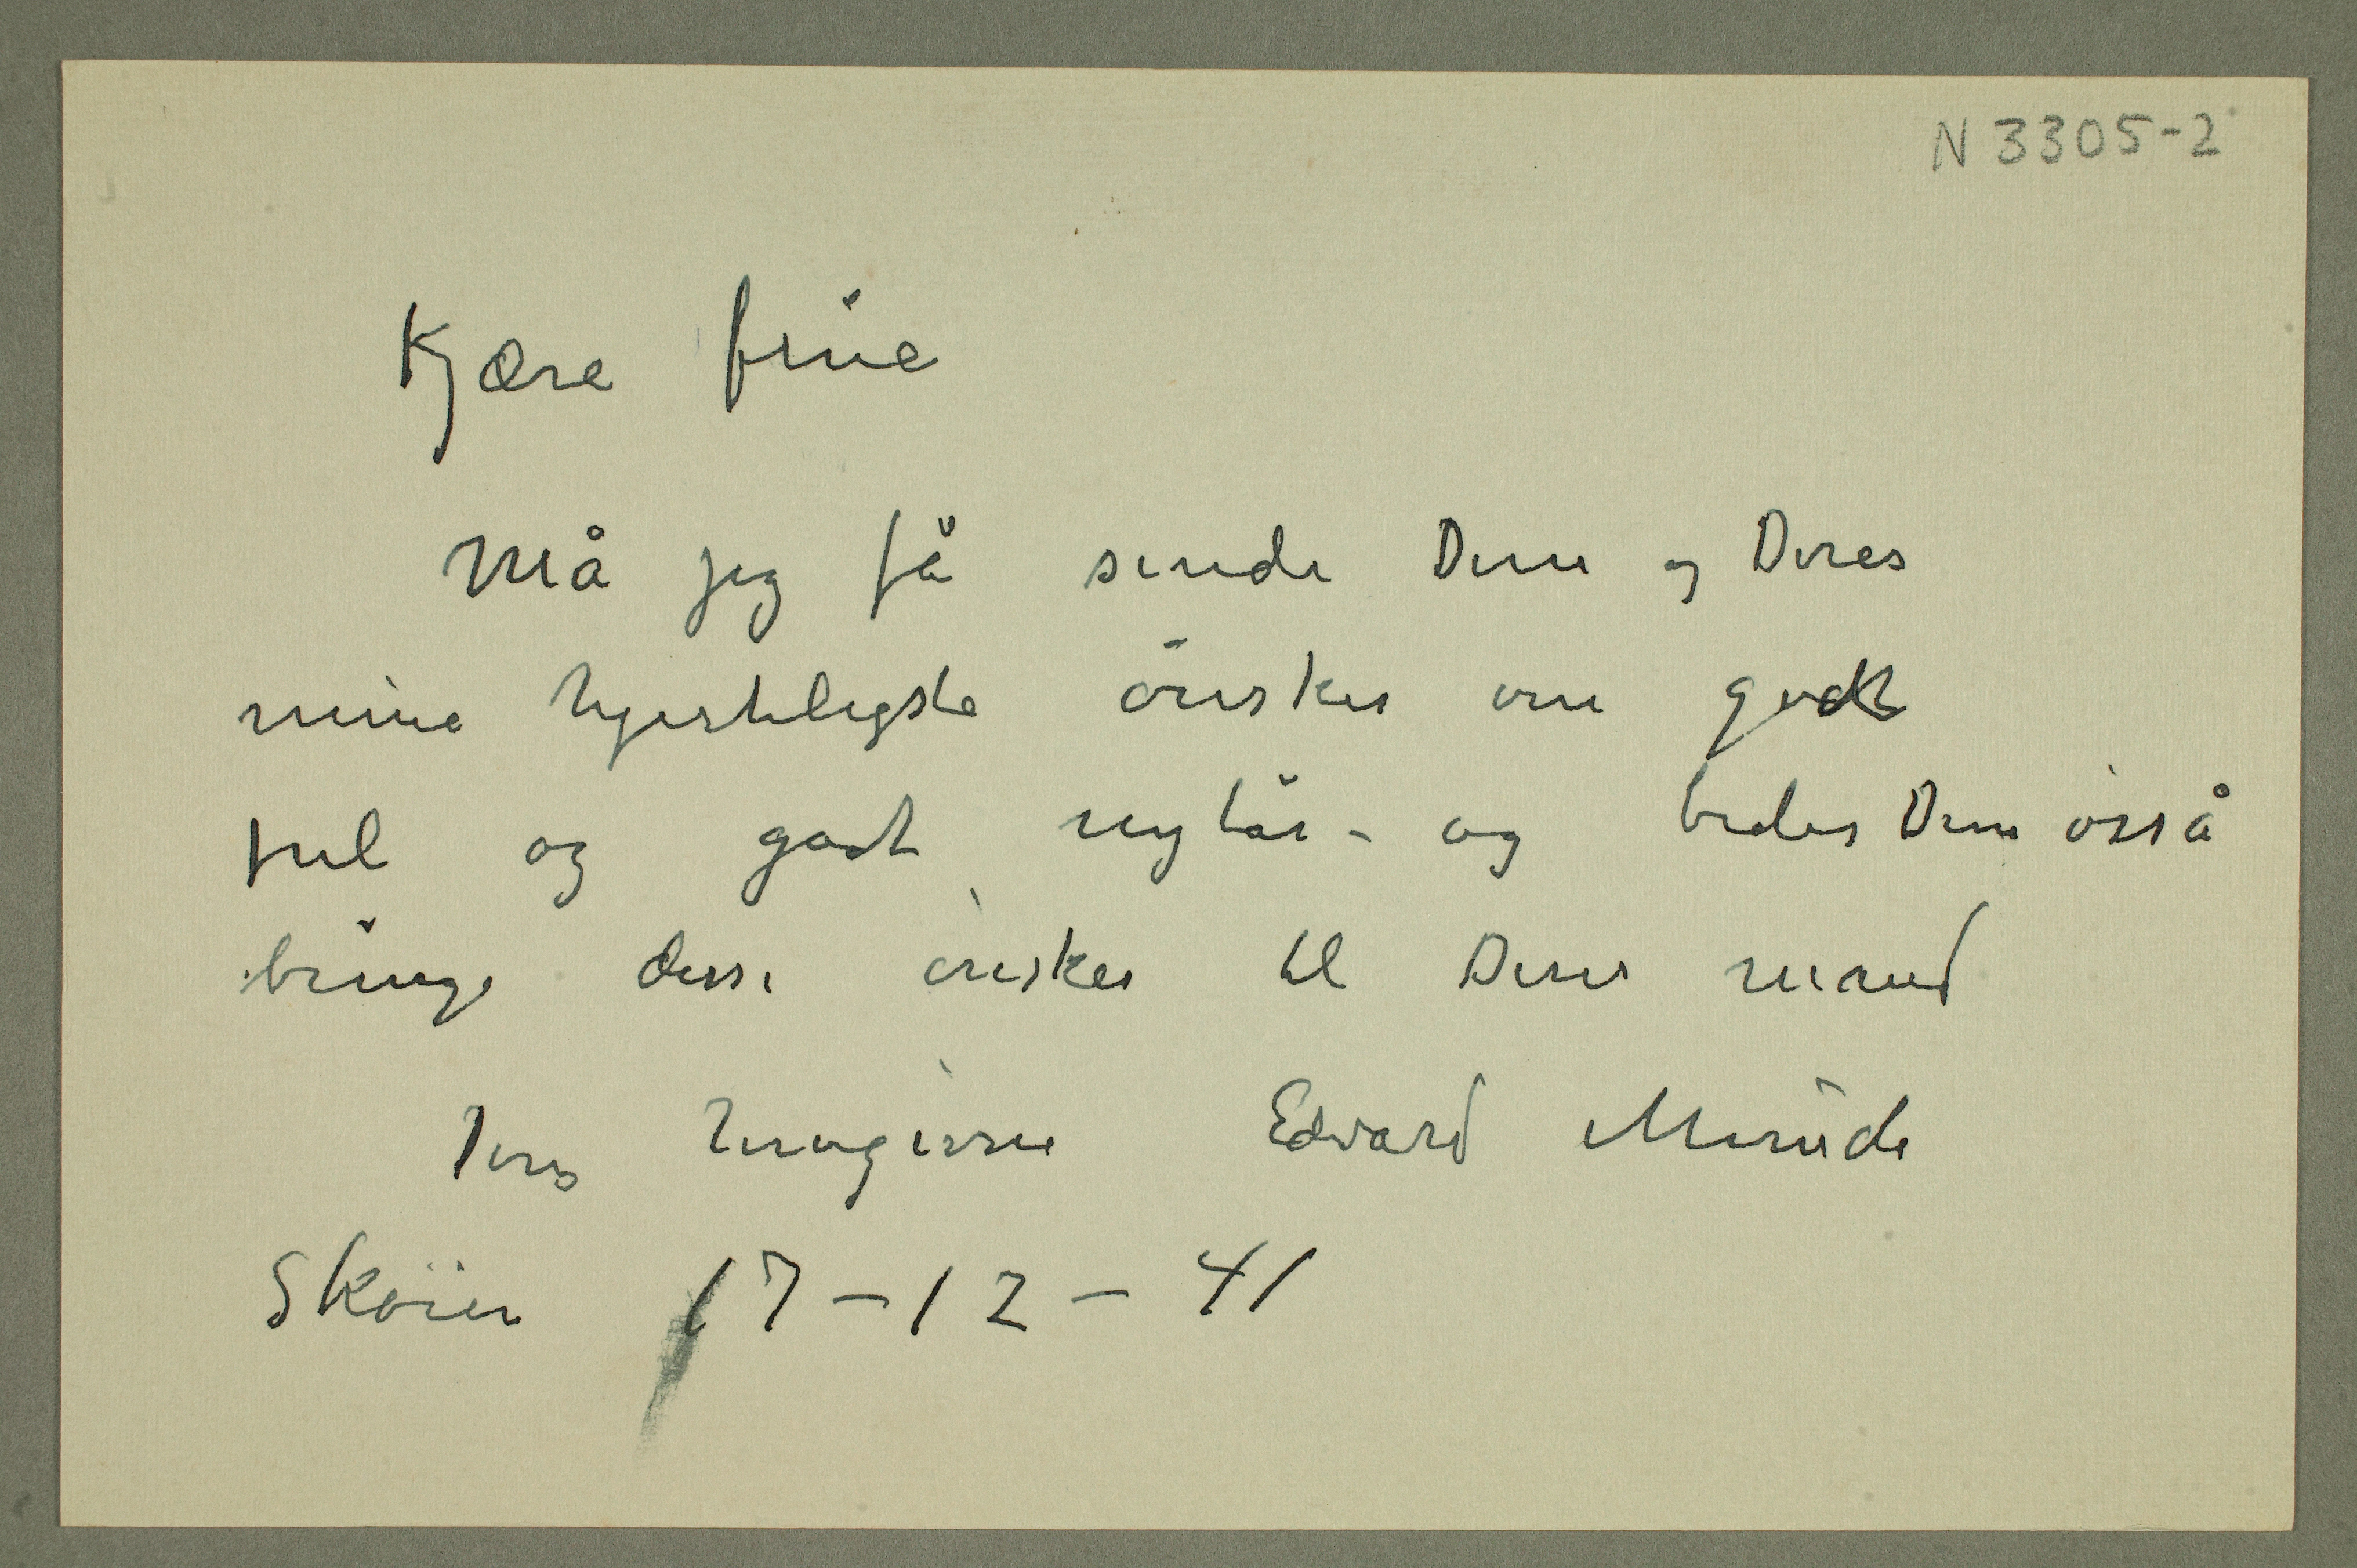 N 3305-2
Kjære frue
Må jeg få sende Dem og Deres
mine hjerteligste ønsker om godt
jul og godt nytår – og beder Dem osså
bringe disse ønsker til Deres mand
Deres hengivne Edvard Munch
Skøien 17–12–41